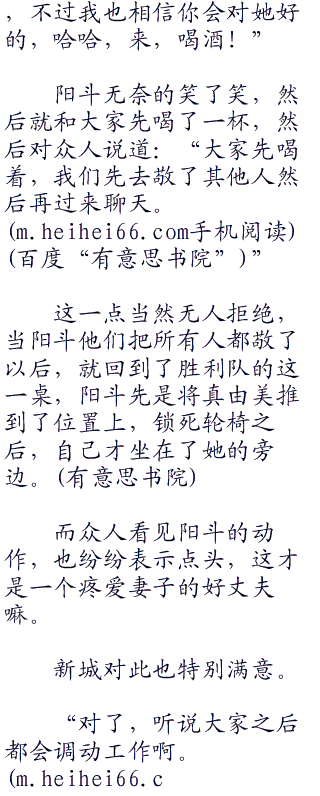 ，不过我也相信你会对她好
的，哈哈，来，喝酒！”
阳斗无奈的笑了笑，然
后就和大家先喝了一杯，然
后对众人说道：“大家先喝
着，我们先去敬了其他人然
后再过来聊天。
(m.heihei66.com手机阅读)
(百度“有意思书院”)”
这一点当然无人拒绝，
当阳斗他们把所有人都敬了
以后，就回到了胜利队的这
一桌，阳斗先是将真由美推
到了位置上，锁死轮椅之
后，自己才坐在了她的旁
边。(有意思书院)
而众人看见阳斗的动
作，也纷纷表示点头，这才
是一个疼爱妻子的好丈夫
嘛。
新城对此也特别满意。
“对了，听说大家之后
都会调动工作啊。
(m.heihei66.c